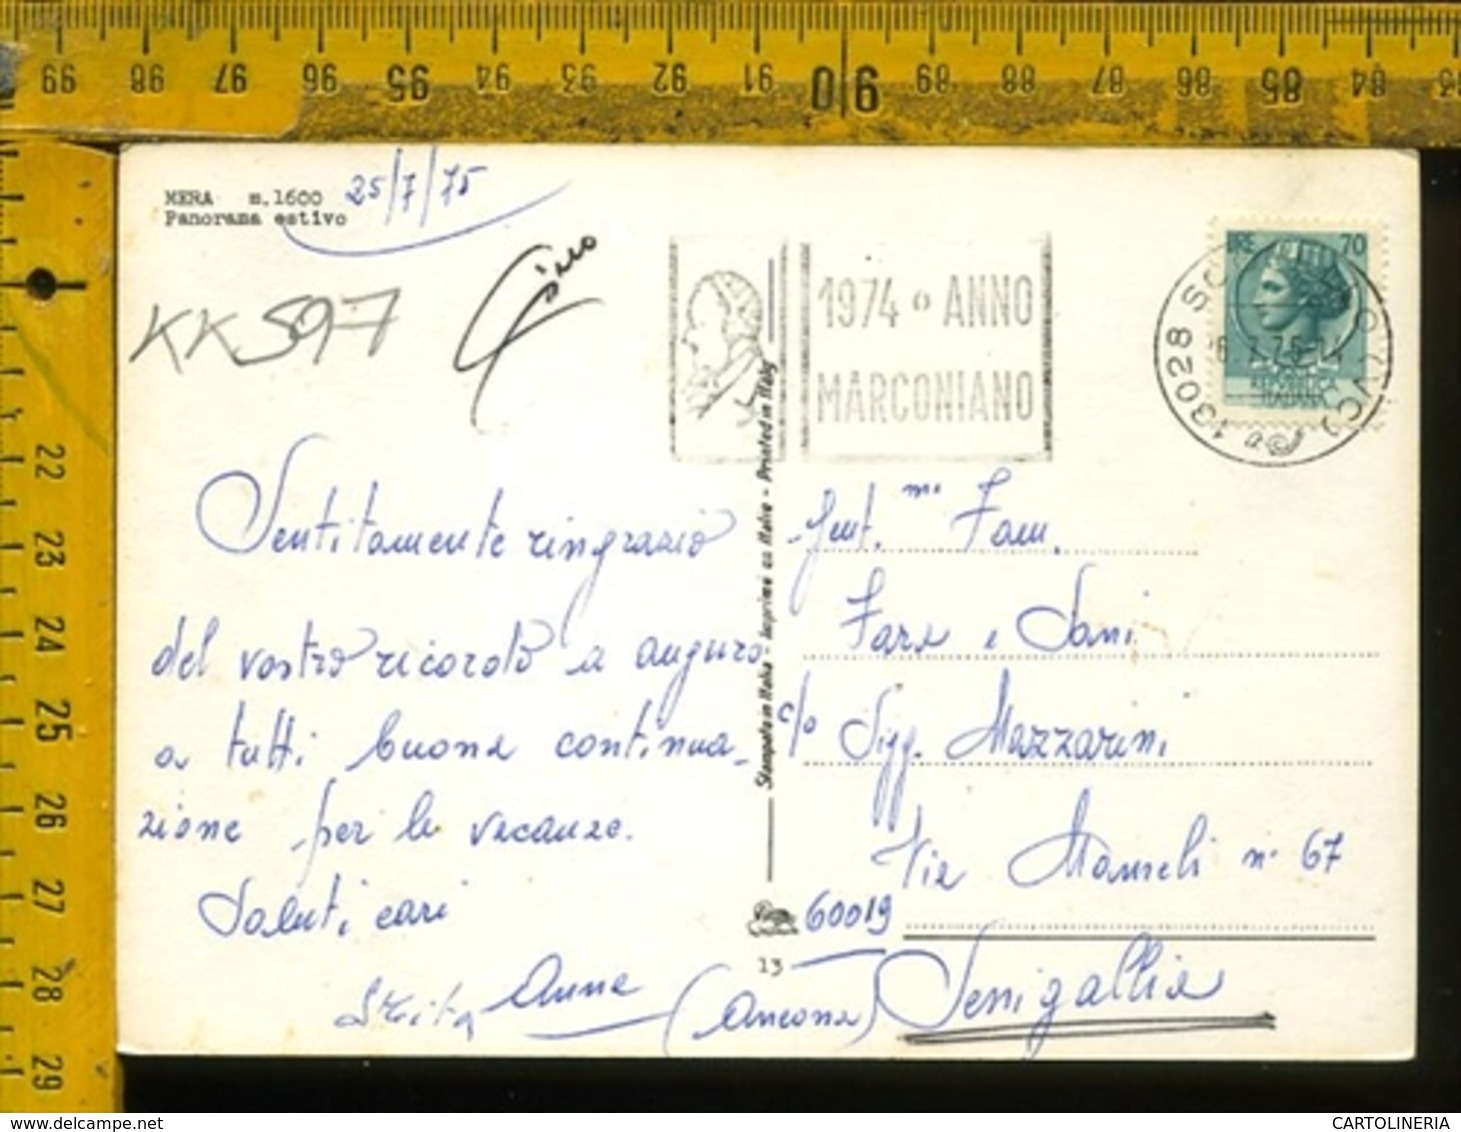 99 98 97 96 95 94 93 92 91 90 89 88 87 86 85 84
MERA m.1600
Panorama estivo
25/7/75
Gino
KK 597
1974 ANNO
MARCONIANO
LIRE 70
REPUBBLICA
ITALIANA
13028 (VC)
Sentitamente ringrazio
del vostro ricordo e auguro
a tutti buona continua-
zione per le vacanze.
Saluti cari
Anna
Stampato in Italia - Imprimé en Italie - Printed in Italy
Gent.mi Fam.
Fara e Sani
c/o Sigg. Mazzarini
Via Mameli n. 67
60019
Senigallia
(Ancona)
13
22
23
24
25
26
27
28
29
CARTOLINERIA